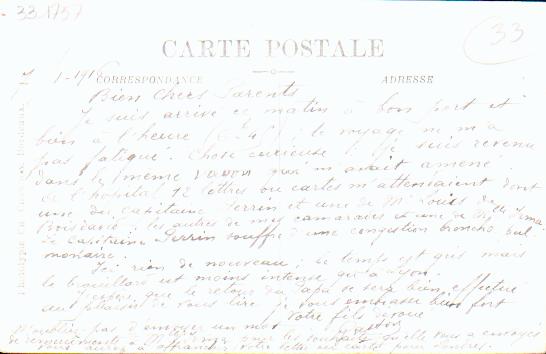 33.1757
33
CARTE POSTALE
CORRESPONDANCE
ADRESSE
1-1916
Bien Chers Parents
Je suis arrivé ce matin à bon port et
bien à l'heure ; le voyage ne m'a
pas fatigué. Chose curieuse ! Je suis revenu
dans le même wagon qui m'avait amené
à l'hopital. 12 lettres ou cartes m'attendaient dont
une du Capitaine Perrin et une de Mr Louis
les autres de mes camarades et une de Irma
Le Capitaine Perrin souffre d'une congestion broncho pul
monaire.
Ici rien de nouveau ; le temps est gris mais
le brouillard est moins intense qu'à
J'espère que le retour de Papa se sera bien effectué
au plaisir de vous lire je vous embrasse bien fort
Votre fils dévoué
N'oubliez pas d'envoyer un mot
de remerciements à pour les qu'elle vous a envoyés
vous aurez à affranchir votre lettre ou carte pour